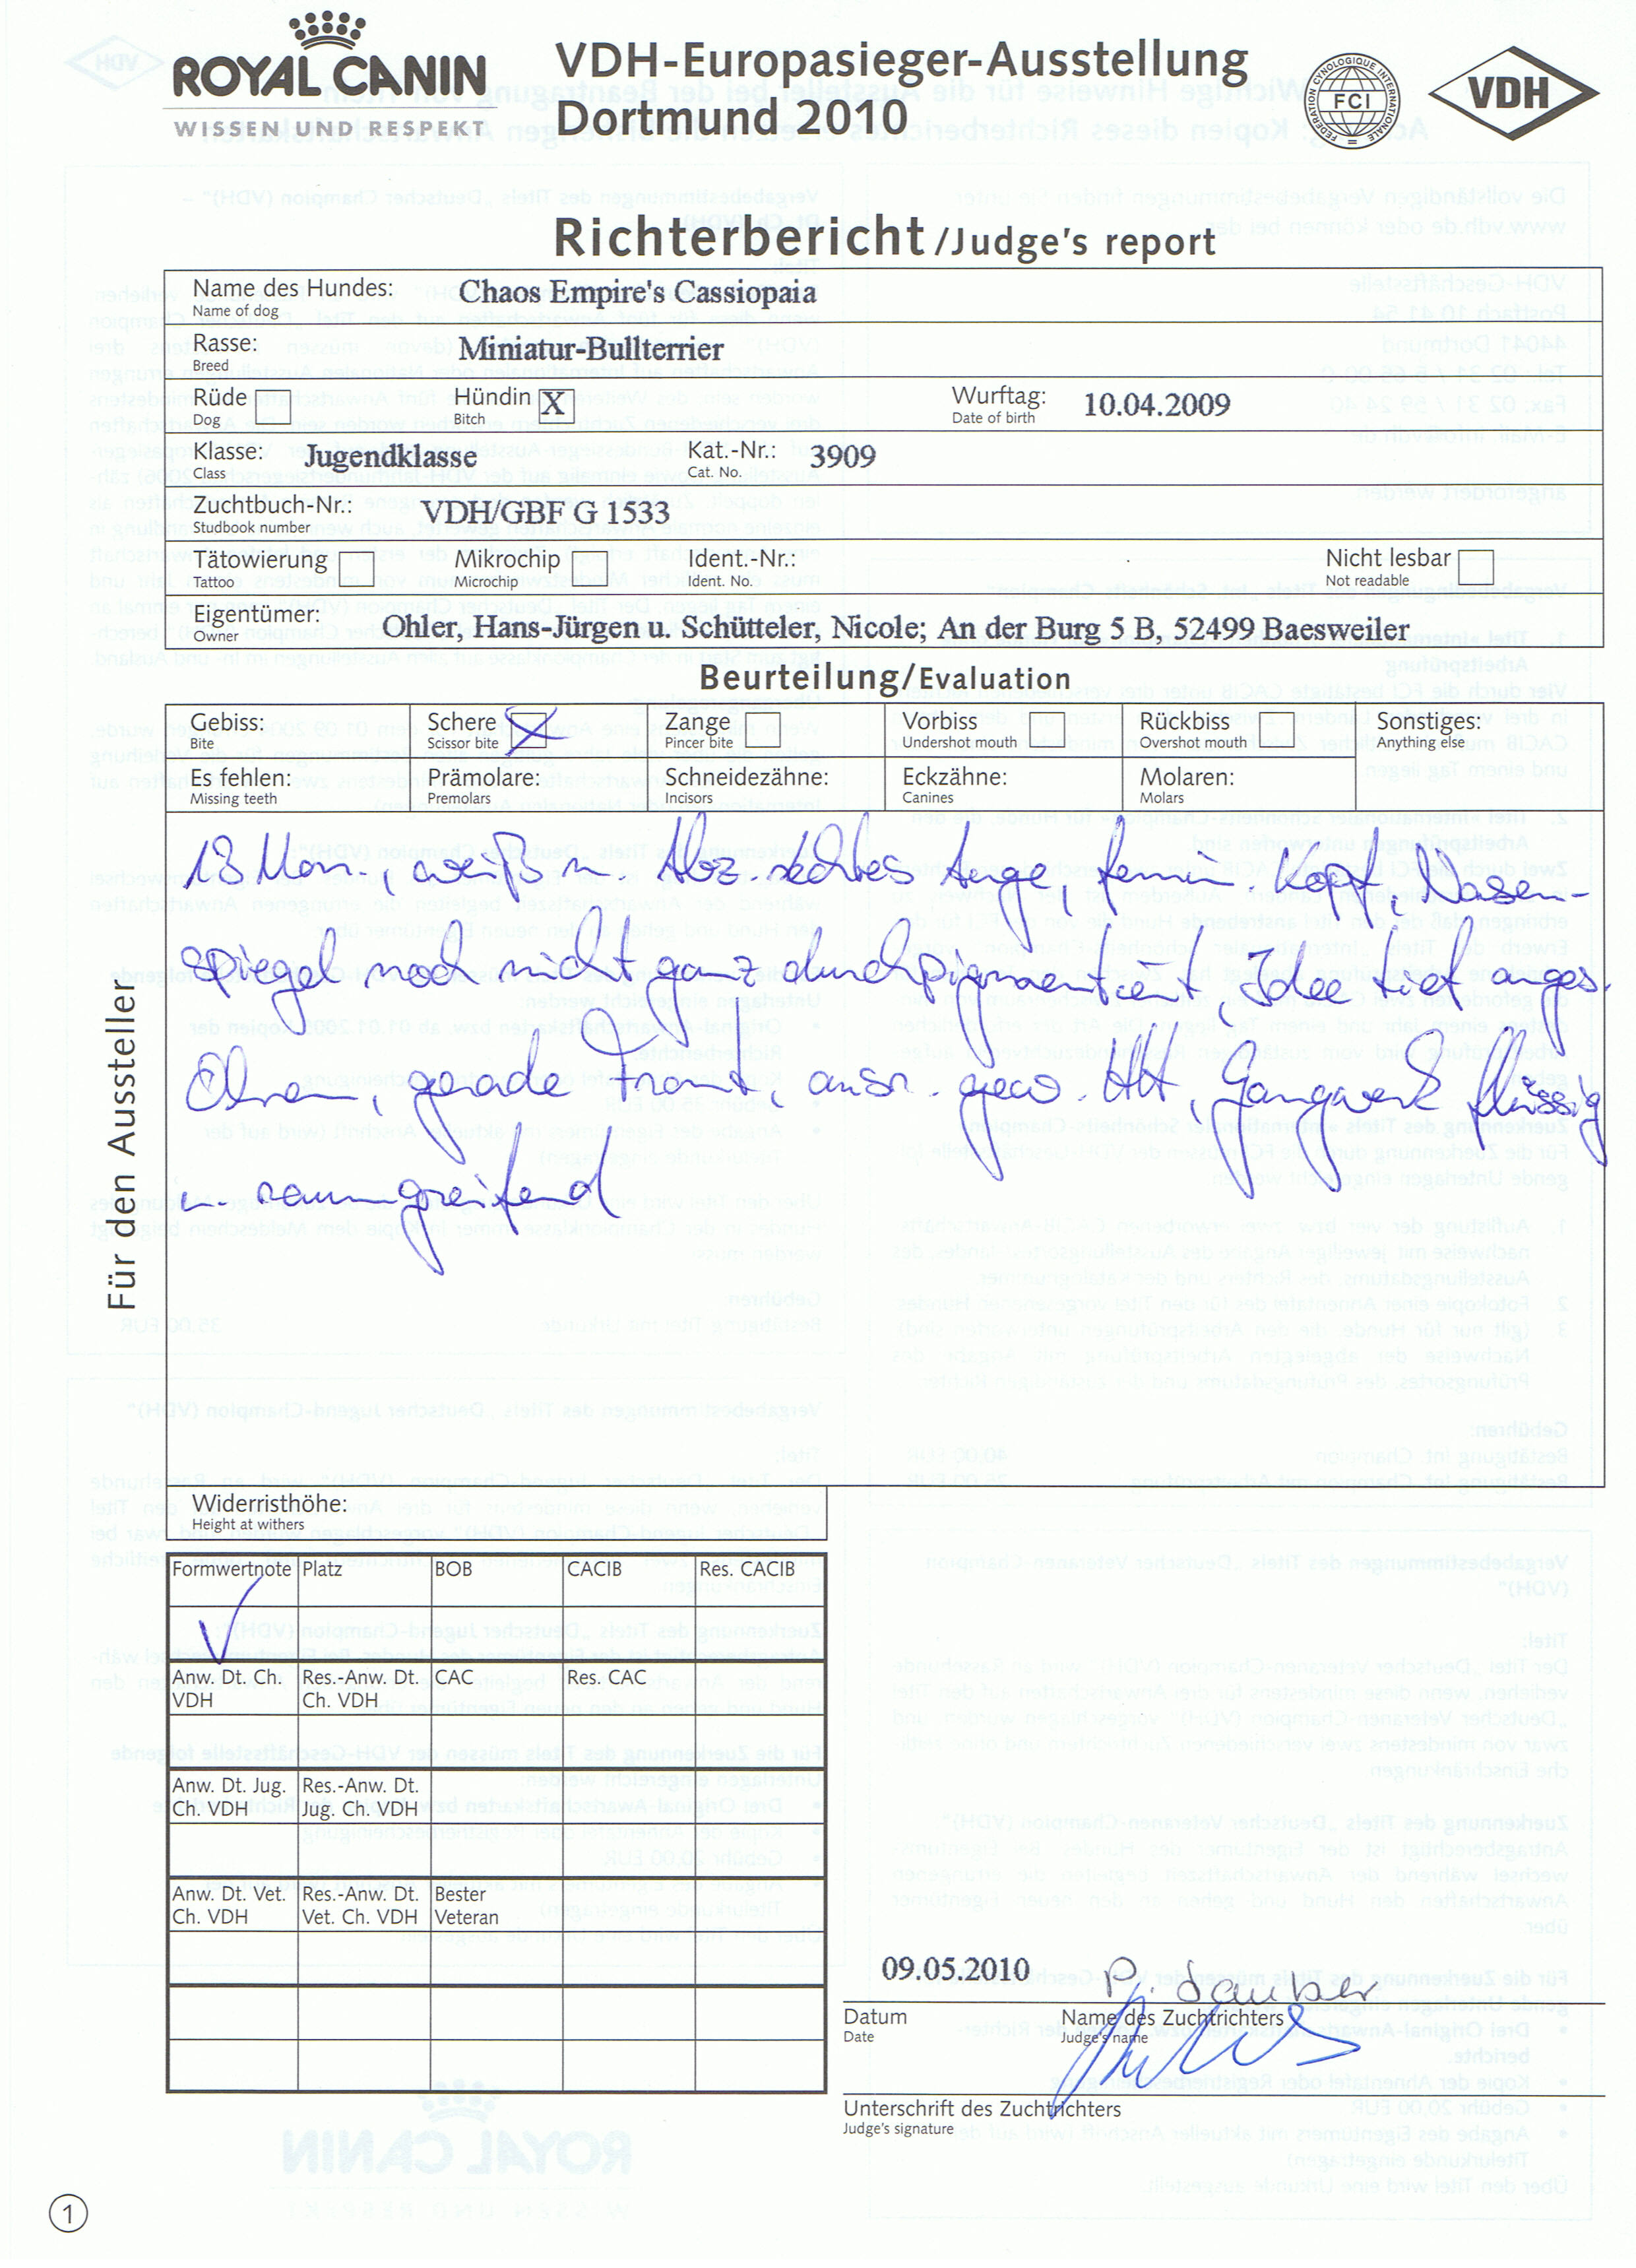 ROYAL CANIN
WISSEN UND RESPEKT
VDH-Europasieger-Ausstellung
Dortmund 2010
FEDERATION CYNOLOGIQUE INTERNATIONALE
FCI
VDH
Richterbericht/Judge's report
Name des Hundes: Chaos Empire's Cassiopaia
Name of dog
Rasse: Miniatur-Bullterrier
Breed
Rüde Hündin X Wurftag: 10.04.2009
Dog Bitch Date of birth
Klasse: Jugendklasse Kat.-Nr.: 3909
Class Cat. No.
Zuchtbuch-Nr.: VDH/GBF G 1533
Studbook number
Tätowierung Mikrochip Ident.-Nr.: Nicht lesbar
Tattoo Microchip Ident. No. Not readable
Eigentümer: Ohler, Hans-Jürgen u. Schütteler, Nicole; An der Burg 5 B, 52499 Baesweiler
Owner
Beurteilung/Evaluation
Gebiss: Schere X Zange Vorbiss Rückbiss Sonstiges:
Bite Scissor bite Pincer bite Undershot mouth Overshot mouth Anything else
Es fehlen: Prämolare: Schneidezähne: Eckzähne: Molaren:
Missing teeth Premolars Incisors Canines Molars
Für den Aussteller
13 Mon., weiß m. rechtes Auge, femin. Kopf, Nasen-
spiegel noch nicht ganz durchpigmentiert, tief anges.
Ohren, gerade Front, ausr. gew. HH, Gangwerk flüssig
u. raumgreifend
Widerristhöhe:
Height at withers
Formwertnote Platz BOB CACIB Res. CACIB
V
Anw. Dt. Ch. VDH Res.-Anw. Dt. Ch. VDH CAC Res. CAC
Anw. Dt. Jug. Ch. VDH Res.-Anw. Dt. Jug. Ch. VDH
Anw. Dt. Vet. Ch. VDH Res.-Anw. Dt. Vet. Ch. VDH Bester Veteran
09.05.2010
Datum Name des Zuchtrichters
Date Judge's name
Unterschrift des Zuchtrichters
Judge's signature
1